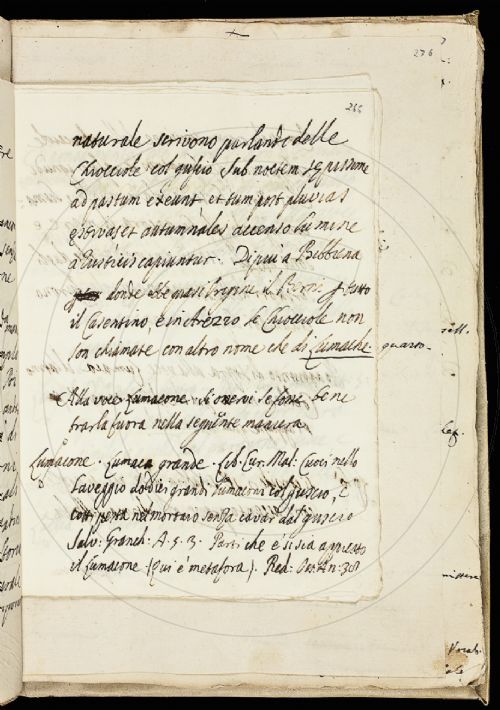 276
266
naturale scrivono parlando delle
Chiocciole col guscio Sub noctem sepissime
ad pastum exeunt et tum post pluvias
estivas et autumnales accenso lumine
a rusticis capiuntur. Di più a Bibbiena
donde ebe quasi l'origine il Berni e tutto
il Casentino, e in Arezzo le Chiocciole non
son chiamate con altro nome che di Lumache
Alla voce Lumacone. Se onervi se fosse bene
trarla fuora nella seguente maniera
Lumacone. Lumaca grande. Lib. Cur. Mal: Cuoci nello
Laveggio dodici grandi lumaconi col guscio, e
cotti pesta nel mortaio senza cavar dal guscio
Salv: Granch: A. 5. 3. Parti che e' si sia appicato
il lumacone (qui è metafora). Red: Os: An: 38
quarto